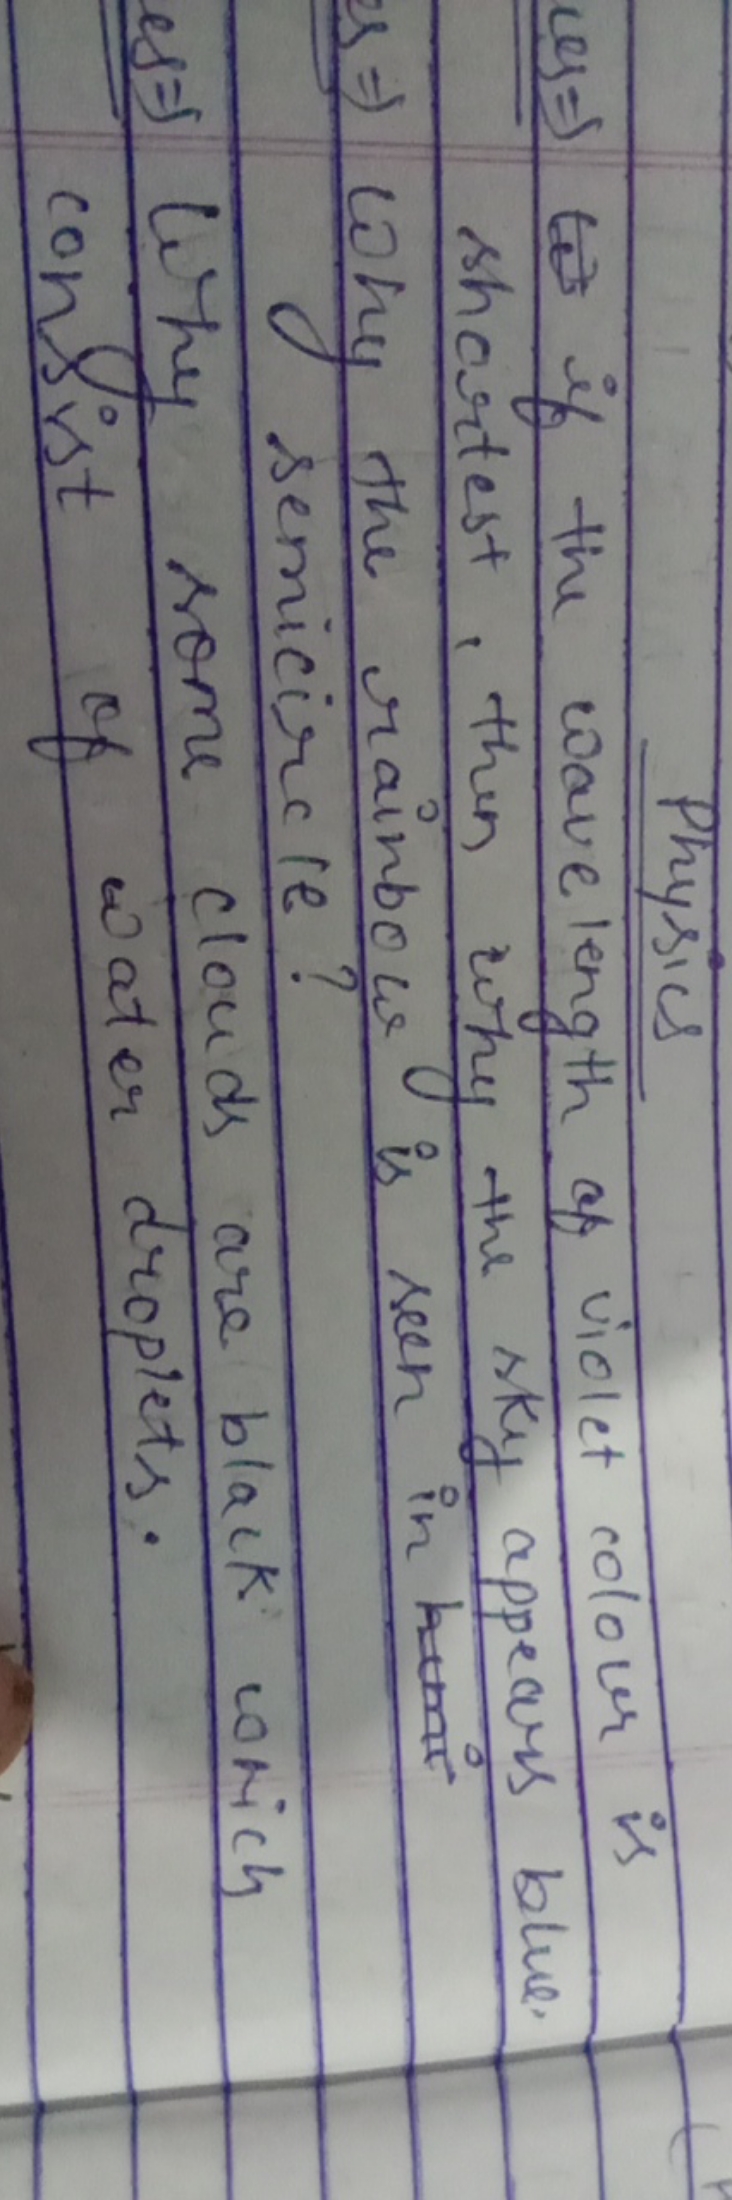 Physics
ues ⇒ if the wavelength of violet colour is
shortest, then why the sky appears blue.
es ⇒ why the rainbow is seen in
semicircle?
es ⇒ Why some clouds are black which
consist of water droplets.